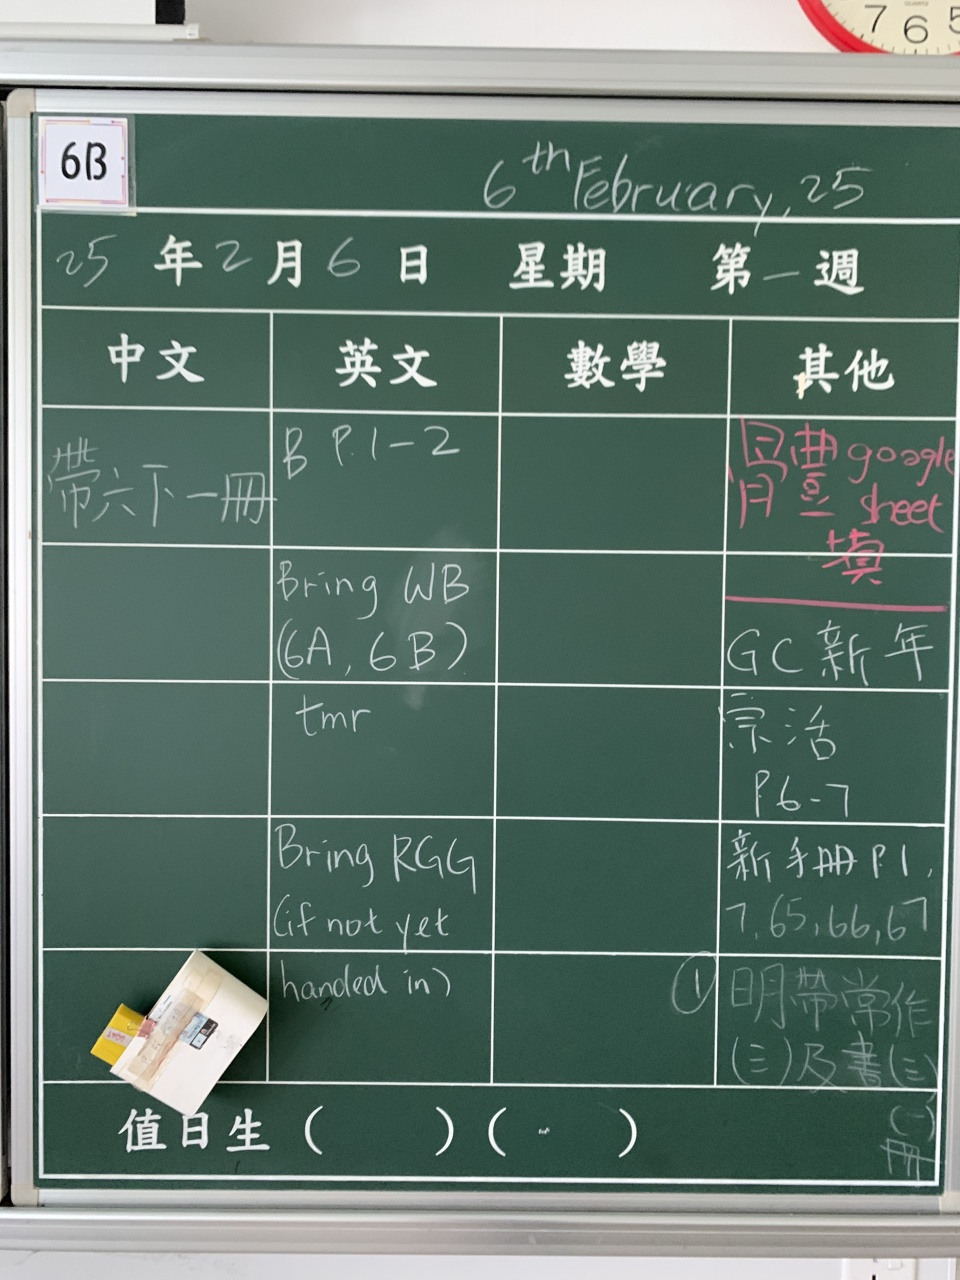 7 6 5
6B
6th February, 25
25 年 2 月 6 日 星期 第一週
中文 英文 數學 其他
帶六下一冊
B P.1-2
Bring WB
(6A, 6B)
tmr
Bring RGG
(if not yet
handed in)
google
sheet
填
GC 新年
P.6-7
新手冊 P1,
7,65,66,67
① 明帶常作
(三)及書(三)
(一)
冊
值日生 ( ) ( )